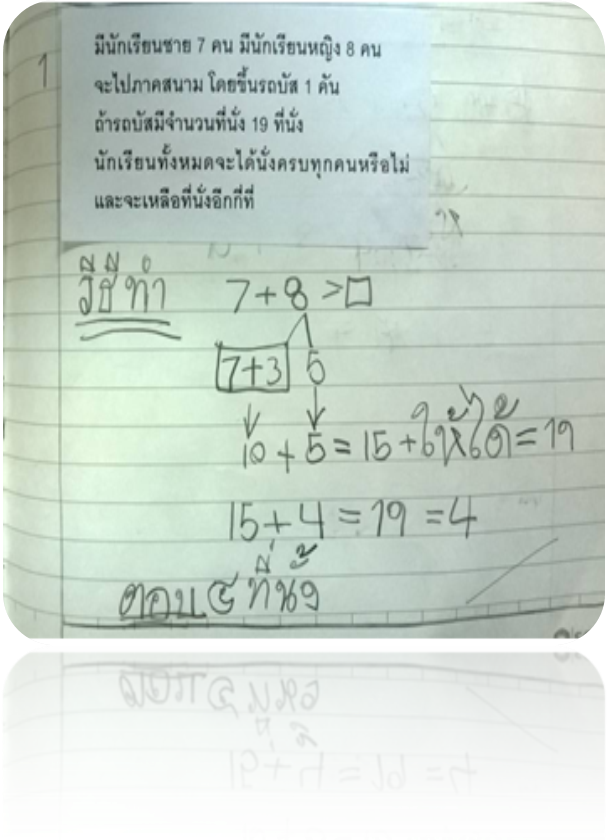 1
มีนักเรียนชาย 7 คน มีนักเรียนหญิง 8 คน
จะไปภาคสนาม โดยขึ้นรถบัส 1 คัน
ถ้ารถบัสมีจำนวนที่นั่ง 19 ที่นั่ง
นักเรียนทั้งหมดจะได้นั่งครบทุกคนหรือไม่
และจะเหลือที่นั่งอีกกี่ที่
วิธีทำ 7+8 >□
7+3 5
10+5=15+ให้ได้=19
15+4=19=4
ตอบ ๔ ที่นั่ง